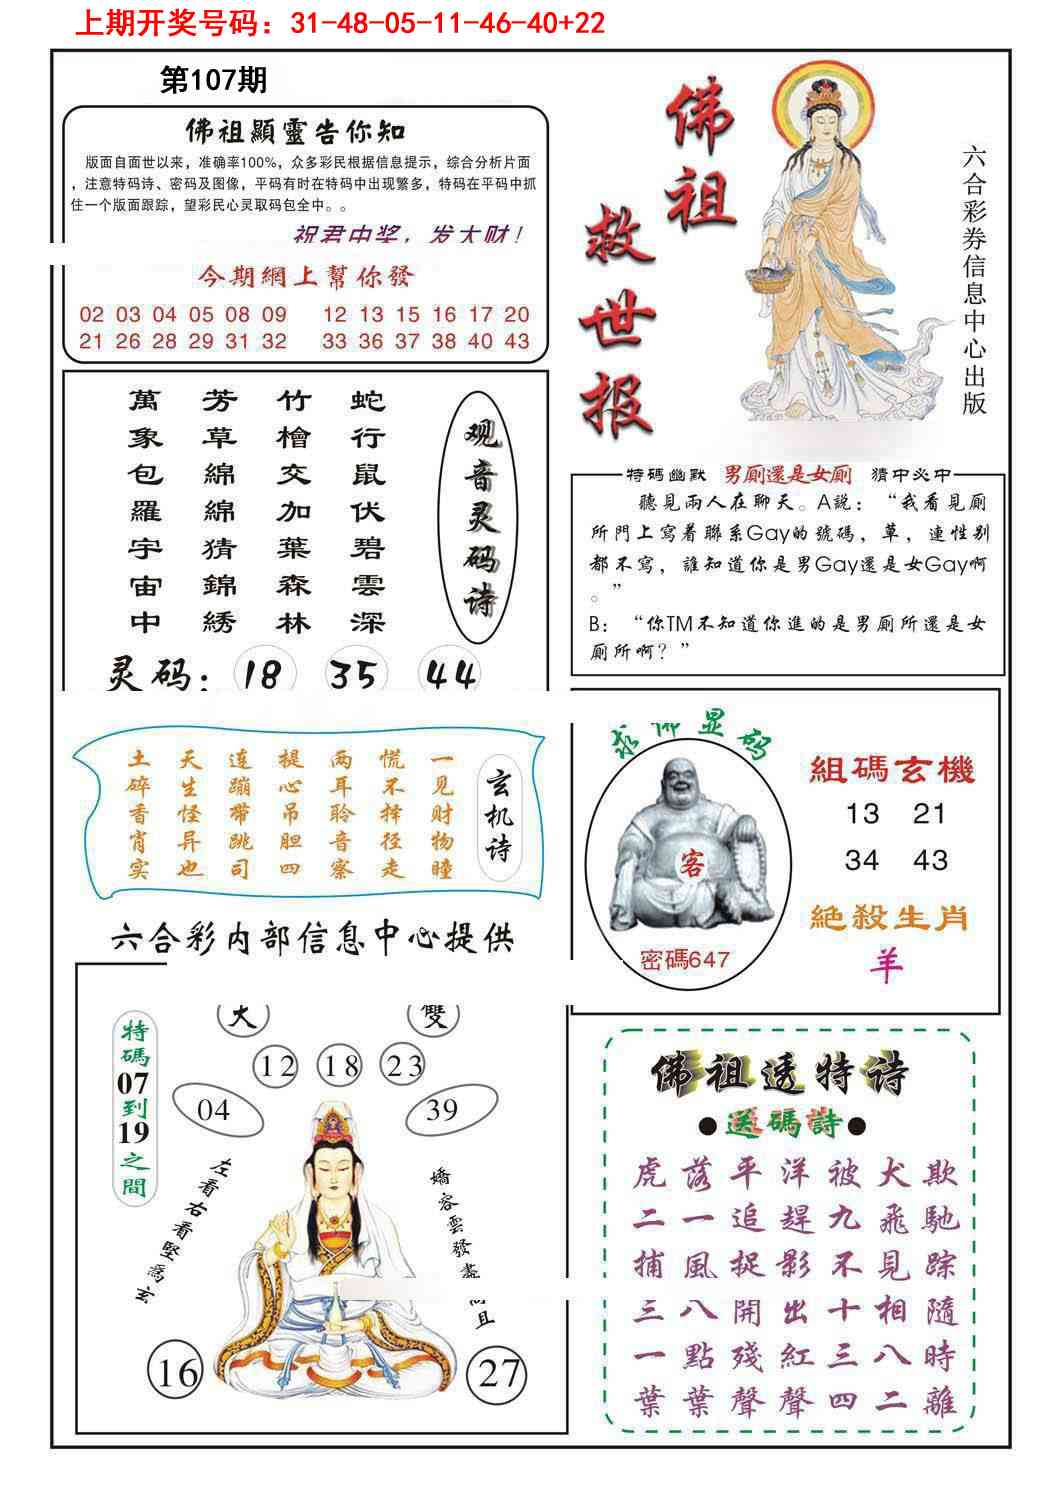 上期开奖号码：31-48-05-11-46-40+22
第107期
佛祖顯靈告你知
版面自面世以来，准确率100%，众多彩民根据信息提示，综合分析片面
，注意特码诗、密码及图像，平码有时在特码中出现繁多，特码在平码中抓
住一个版面跟踪，望彩民心灵取码包全中。。
祝君中奖，发大财！
今期網上幫你發
02 03 04 05 08 09 12 13 15 16 17 20
21 26 28 29 31 32 33 36 37 38 40 43
佛祖
救世报
六合彩券信息中心出版
观音灵码诗
蛇行鼠伏碧雲深
竹檜交加葉森林
芳草綿綿猜錦綉
萬象包羅宇宙中
灵码：18 35 44
特碼幽默 男厠還是女厠 猜中必中
聽見兩人在聊天。A説：“我看見厠
所門上寫着聯系Gay的號碼，草，連性别
都不寫，誰知道你是男Gay還是女Gay啊
。”
B：“你TM不知道你進的是男厠所還是女
厠所啊？”
玄机诗
一见财物瞳
慌不择径走
两耳聆音察
提心吊胆四
连蹦带跳司
天生怪异也
土碎香宵实
求佛显码
客
密碼647
組碼玄機
13 21
34 43
絶殺生肖
羊
六合彩内部信息中心提供
特碼07到19之間
大 雙
12 18 23
04 39
左看右看堅爲玄
嬌容雲發盡
且
16 27
佛祖透特诗
●送碼詩●
虎落平洋被犬欺
二一追趕九飛馳
捕風捉影不見踪
三八開出十相隨
一點殘紅三八時
葉葉聲聲四二離